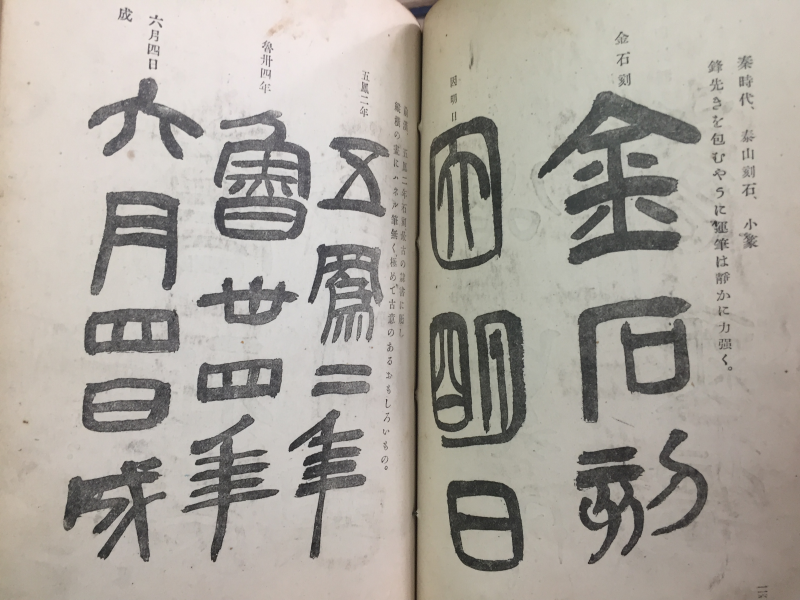 秦時代、泰山刻石、小篆
鋒先きを包むやうに運筆は靜かに力强く。
金石刻
金石刻
因明日
因明日
五鳳二年石刻最古の隷書に屬し
筆無く極めて古意のあるおもしろいもの。
五鳳二年
五鳳二年
魯卅四年
魯卅四年
六月四日
成
六月四日成